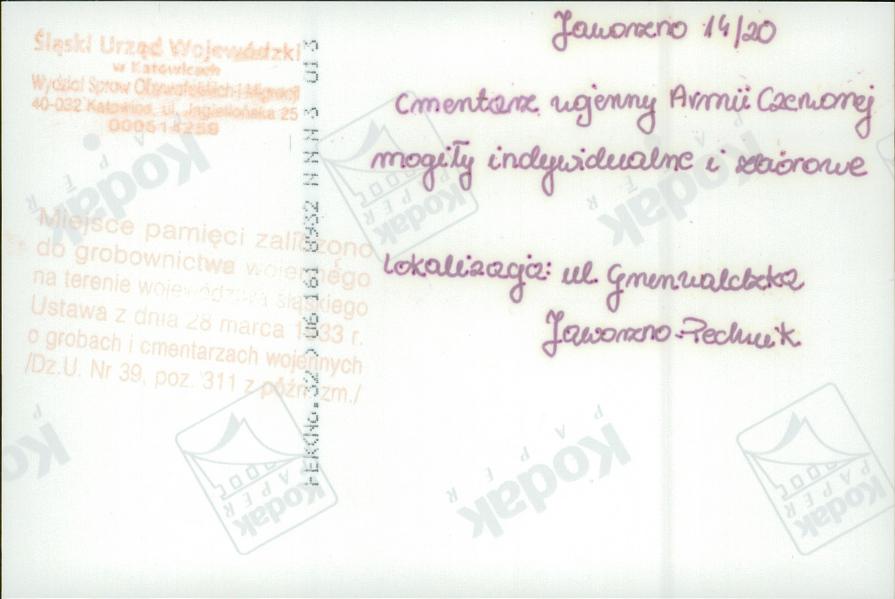 Śląski Urząd Wojewódzki
w Katowicach
Wydział Spraw Obywatelskich i Migracji
40-032 Katowice, ul. Jagiellońska 25
000514259
Miejsce pamięci zaliczono
do grobownictwa wojennego
na terenie województwa śląskiego
Ustawa z dnia 28 marca 1933 r.
o grobach i cmentarzach wojennych
/Dz.U. Nr 39, poz. 311 z późn. zm./
Jaworzno 14/20
Cmentarz wojenny Armii Czerwonej
mogiły indywidualne i zbiorowe
Lokalizacja: ul. Grunwaldzka
Jaworzno-Pechnik
Kodak
PAPER
Kodak
PAPER
Kodak
PAPER
Kodak
PAPER
Kodak
PAPER
Kodak
PAPER
Kodak
PAPER